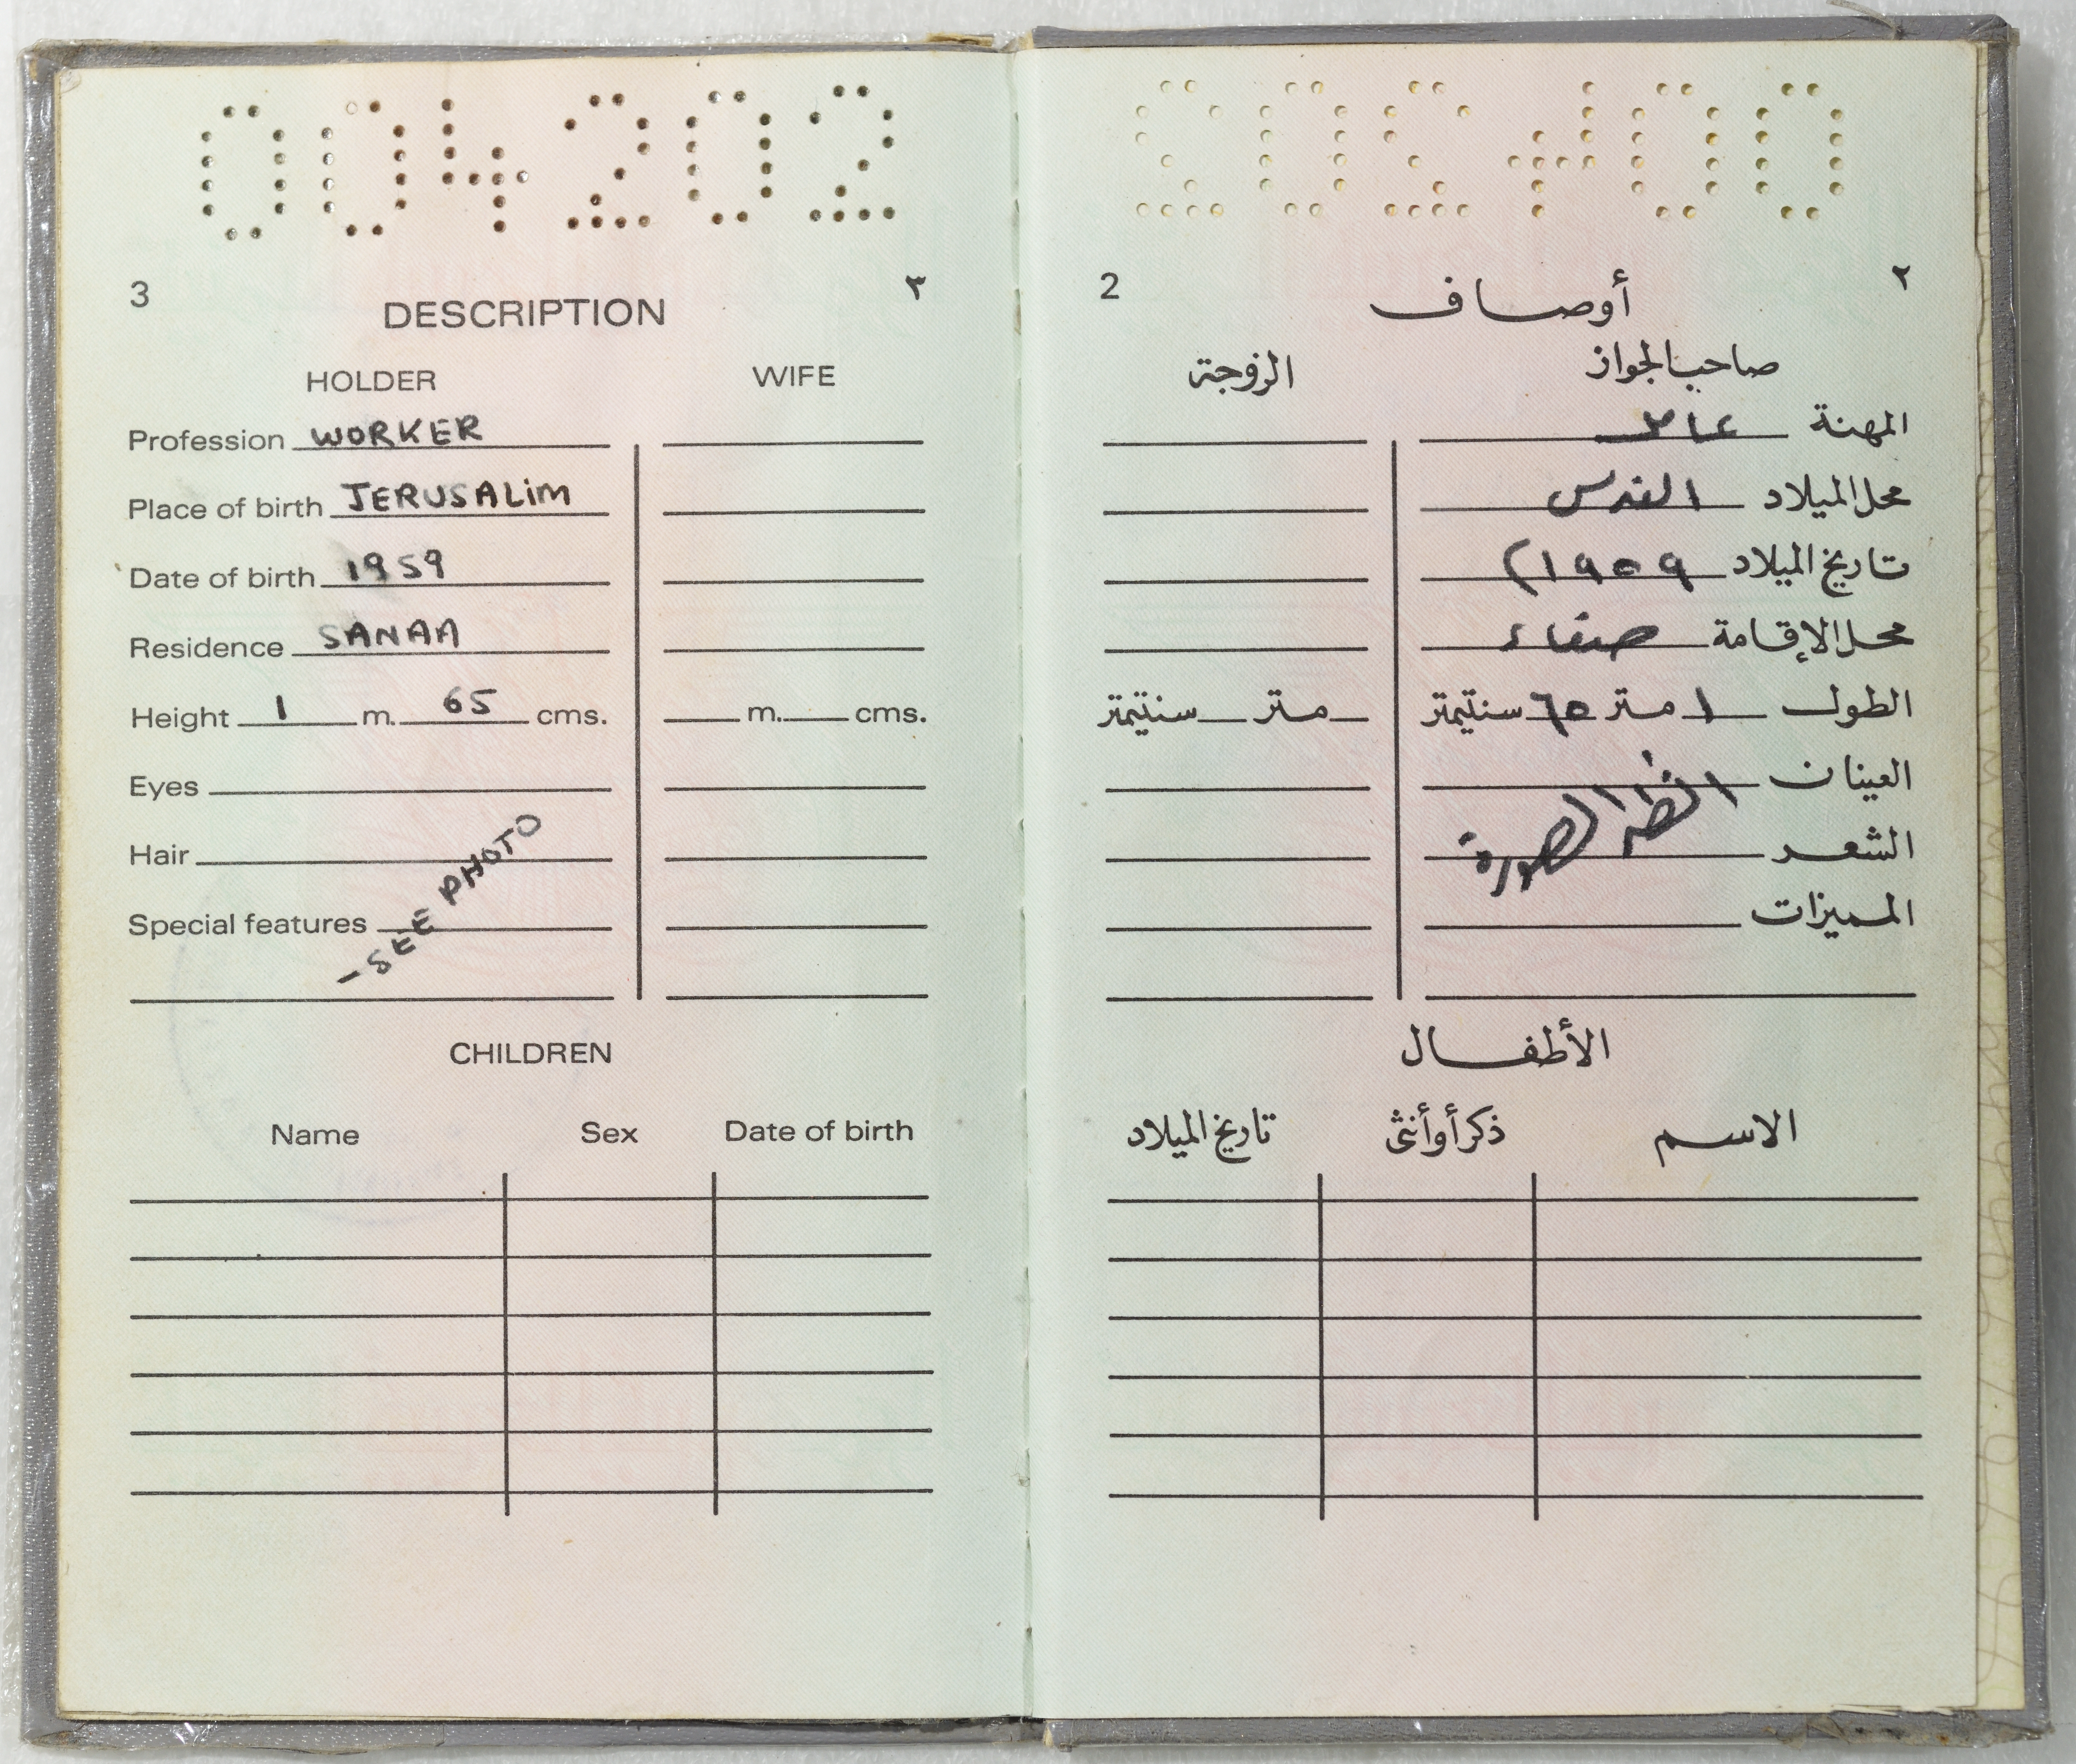 004202
3 ٣
DESCRIPTION
HOLDER WIFE
Profession WORKER
Place of birth JERUSALiM
Date of birth 1959
Residence SANAA
Height 1 m. 65 cms. m. cms.
Eyes
Hair
Special features
-SEE PHOTO
CHILDREN
Name Sex Date of birth
2 ٢
أوصاف
صاحب الجواز الزوجة
المهنة عامل
محل الميلاد القدس
تاريخ الميلاد ١٩٥٩)
محل الإقامة صنعاء
الطول ١ متر ٦٥ سنتيمتر متر سنتيمتر
العينان
الشعر
انظر الصورة
المميزات
الأطفال
الاسم ذكر أو أنثى تاريخ الميلاد